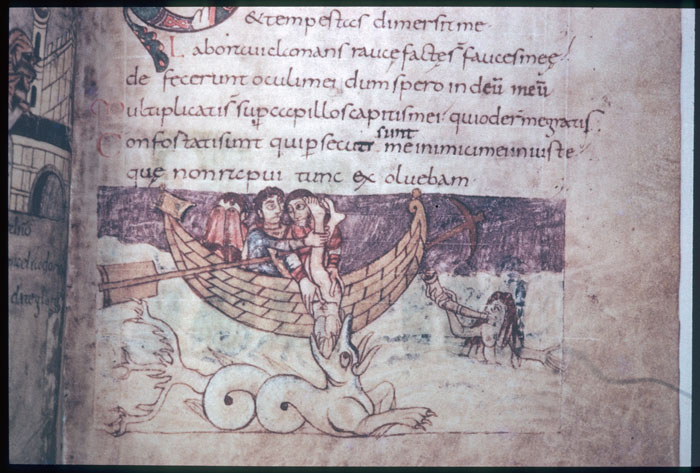 & tempestas dimersit me
Laboraui clamans rauce facte s̄ fauces meę
defecerunt oculi mei dum spero in deū meū
Multiplicati s̄ sup capillos capitis mei · qui oder me gratis
Confortati sunt qui persecuti sunt me inimici mei iniuste
que non rapui tunc exoluebam